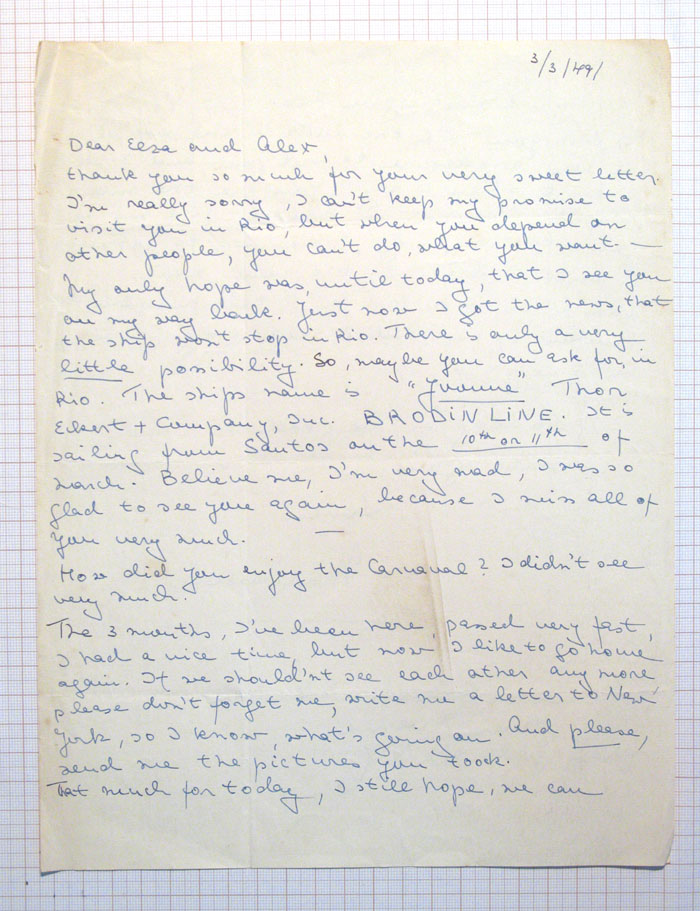 3/3/49/
Dear Elza and Alex,
thank you so much for your very sweet letter.
I'm really sorry, I can't keep my promise to
visit you in Rio, but when you depend on
other people, you can't do, what you want. —
My only hope was, until today, that I see you
on my way back. Just now I got the news, that
the ship won't stop in Rio. There is only a very
little possibility. So, maybe you can ask for, in
Rio. The ships name is "Yvonne" Thor
Eckert + Company, Inc. BRODIN LINE. It is
sailing from Santos on the 10th or 11th of
march. Believe me, I'm very sad, I was so
glad to see you again, because I miss all of
you very much. —
How did you enjoy the Carnaval? I didn't see
very much.
The 3 months, I've been here, passed very fast,
I had a nice time, but now I like to go home
again. If we should'nt see each other any more
please don't forget me, write me a letter to New
York, so I know, what's going on. And please,
send me the pictures you toock.
That much for today, I still hope, we can